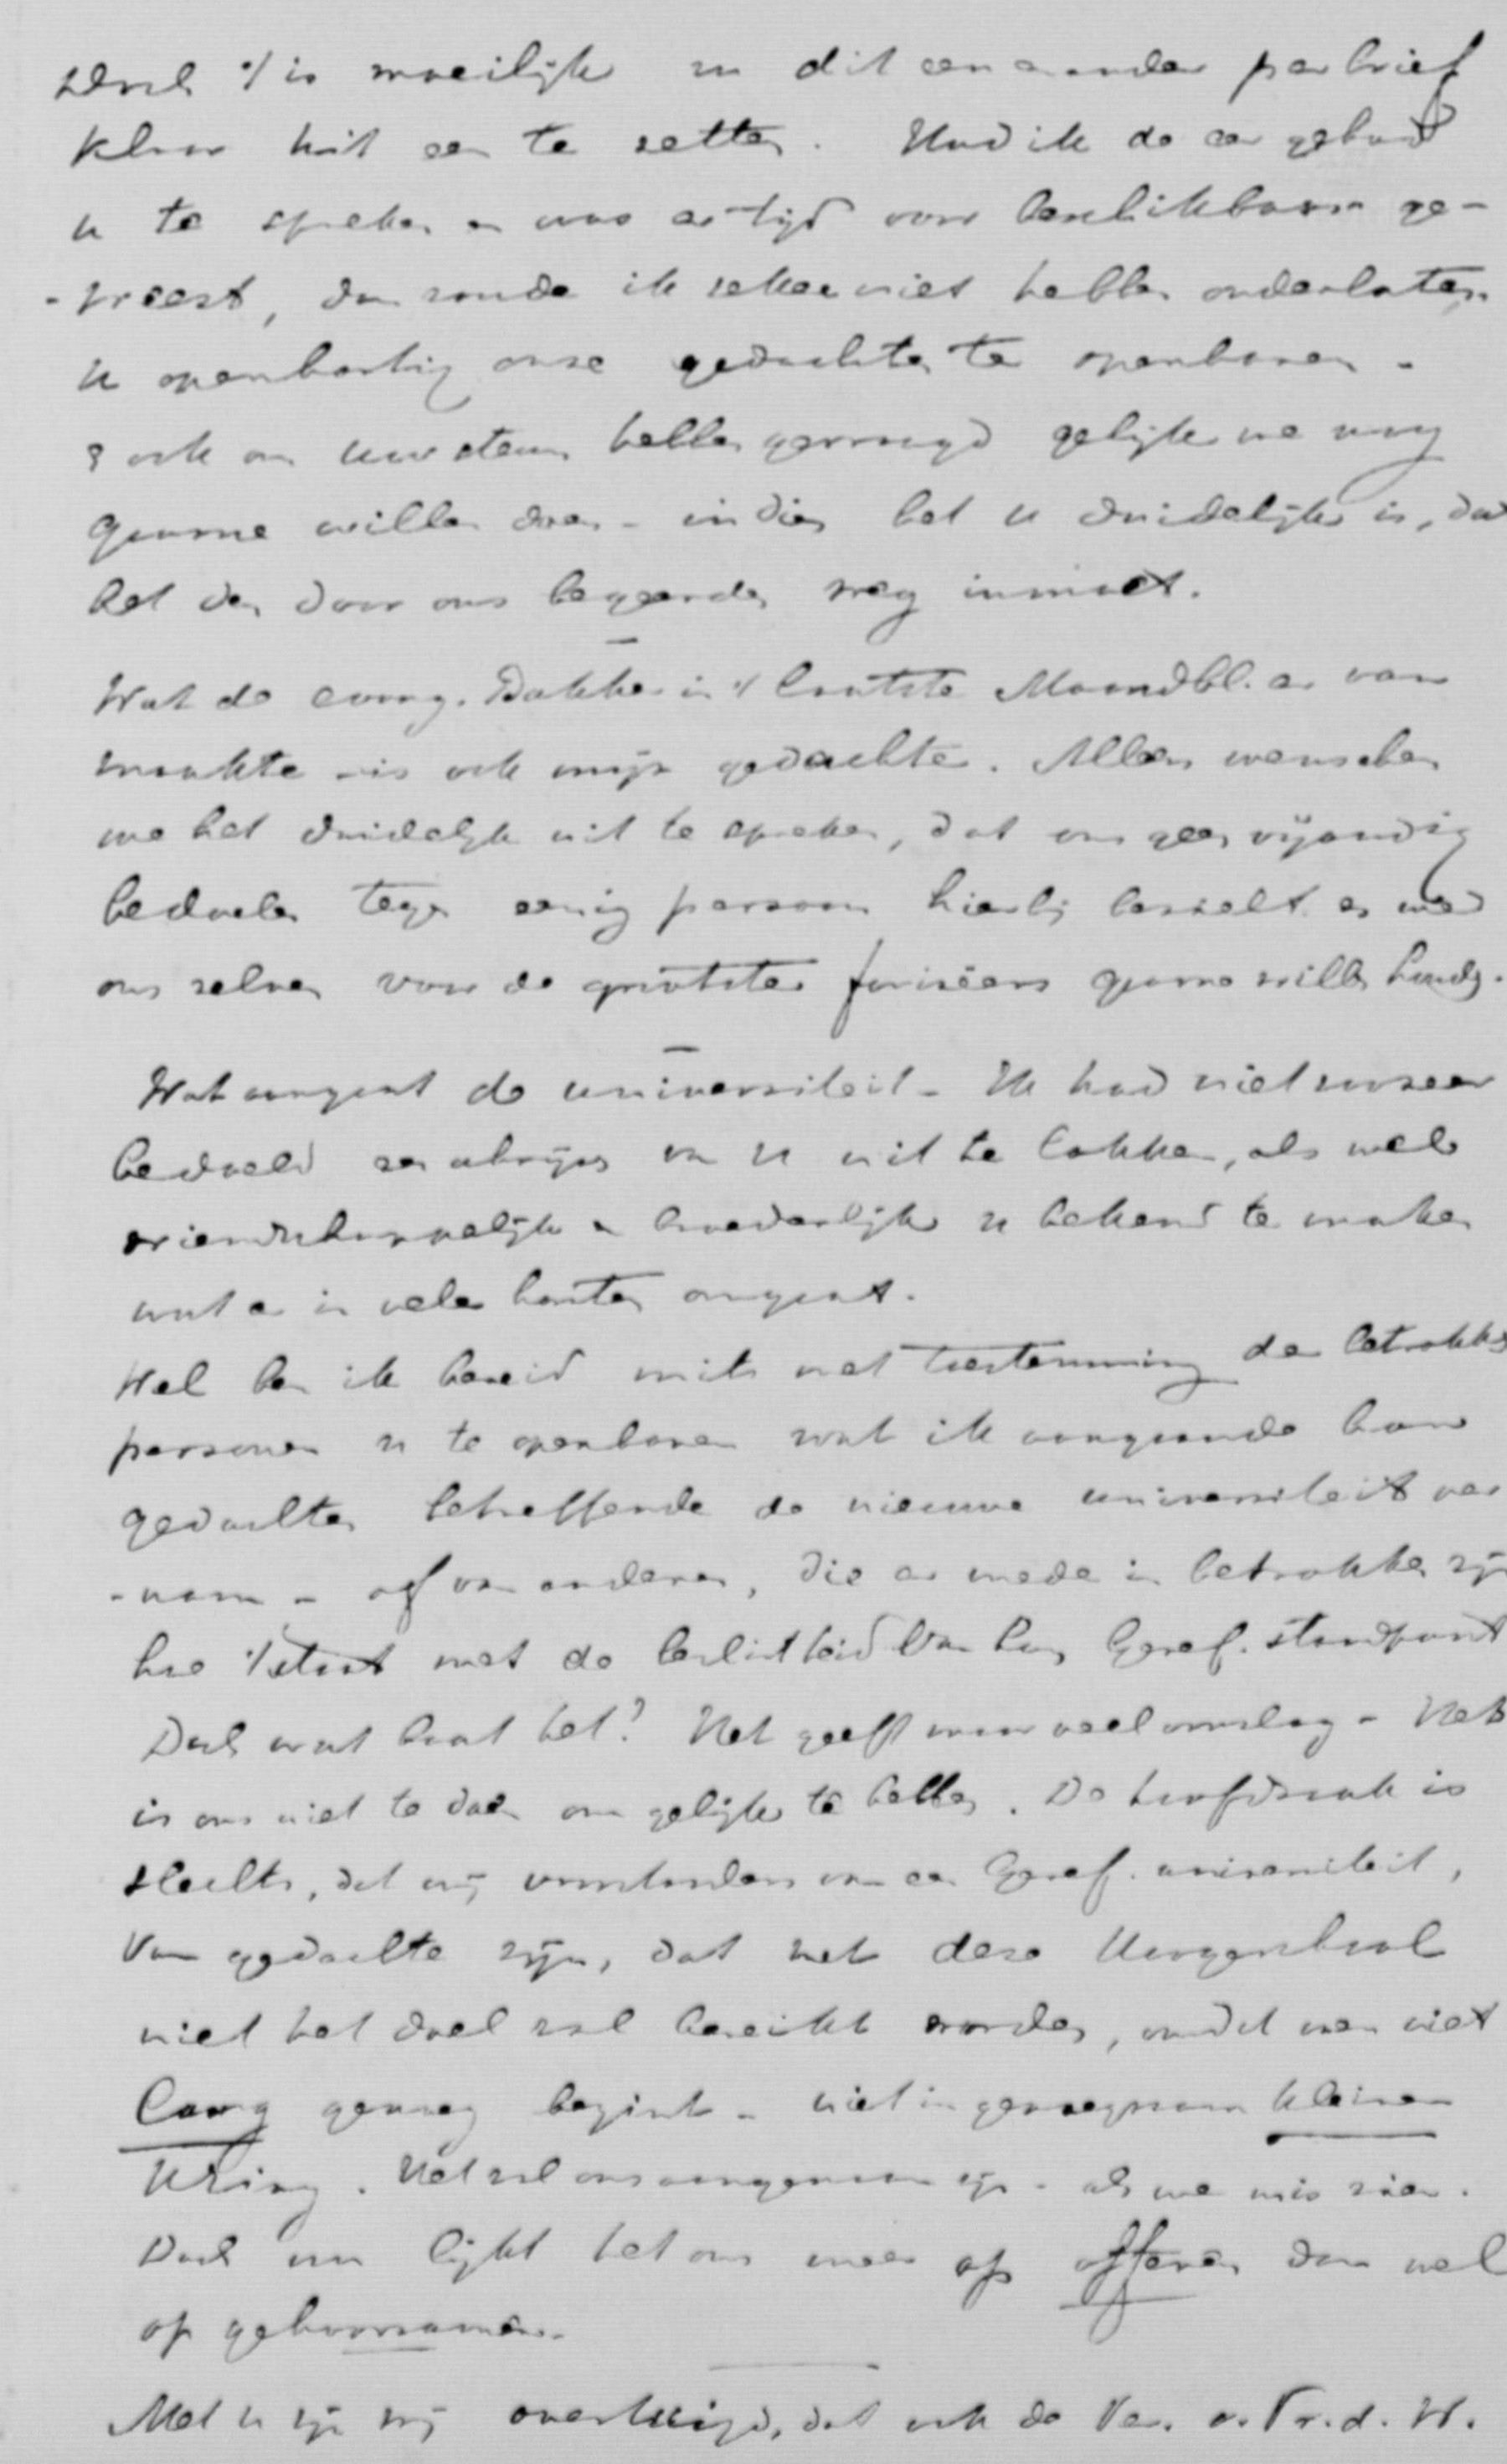 Doch 't is moeilijk u dit een en ander per brief
klaar uit een te zetten. Had ik de eer gehad
u te spreken en was er tijd voor beschikbaar ge-
-weest, dan zoude ik zeker niet hebben onderlaten
u openhartig onze gedachten te openbaren -
& ook om uw steun hebben gevraagd gelijk we nog
gaarne willen doen - indien het u duidelijk is, dat
het den door ons begeerden weg inmoet.
Wat de evang. Bakker in 't laatste Maandbl. er van
maakte - is ook mijn gedachte. Alleen wenschen
we het duidelijk uit te spreken, dat ons geen vijandig
bedoelen tegen eenig persoon hierbij bezielt en we
ons zelven voor de grootste farizëers gaarne willen houden.
Wat aangaat de universiteit - Ik had niet zoozeer
bedoeld een abrijs van u uit te lokken, als wel
vriendschappelijk en broederlijk u bekend te maken
wat er in vele harten omgaat.
Wel ben ik bereid mits met toestemming der betrokken
personen u te openbaren wat ik aangaande hare
gedachten betreffende de nieuwe universiteit ver
-nam - of van anderen, die er mede in betrokken zijn
hoe 't staat met de beslistheid van hun Geref. standpunt
Doch wat baat het? Het geeft maar veel omslag - Het
is ons niet te doen om gelijk te hebben. De hoofdzaak is
slechts, dat wij voorstanders van een Geref. universiteit,
van gedachte zijn, dat met deze Hoogeschool
niet het doel zal bereikt worden, omdat men niet
laag genoeg begint - niet in genoegzaam kleinen
kring. Het zal ons aangenaam zijn - als we mis zien.
Doch nu lijkt het ons meer op offeren dan wel
op gehoorzamen.
Met u zijn wij overtuigd, dat ook de Ver. v. Vr. d. W.